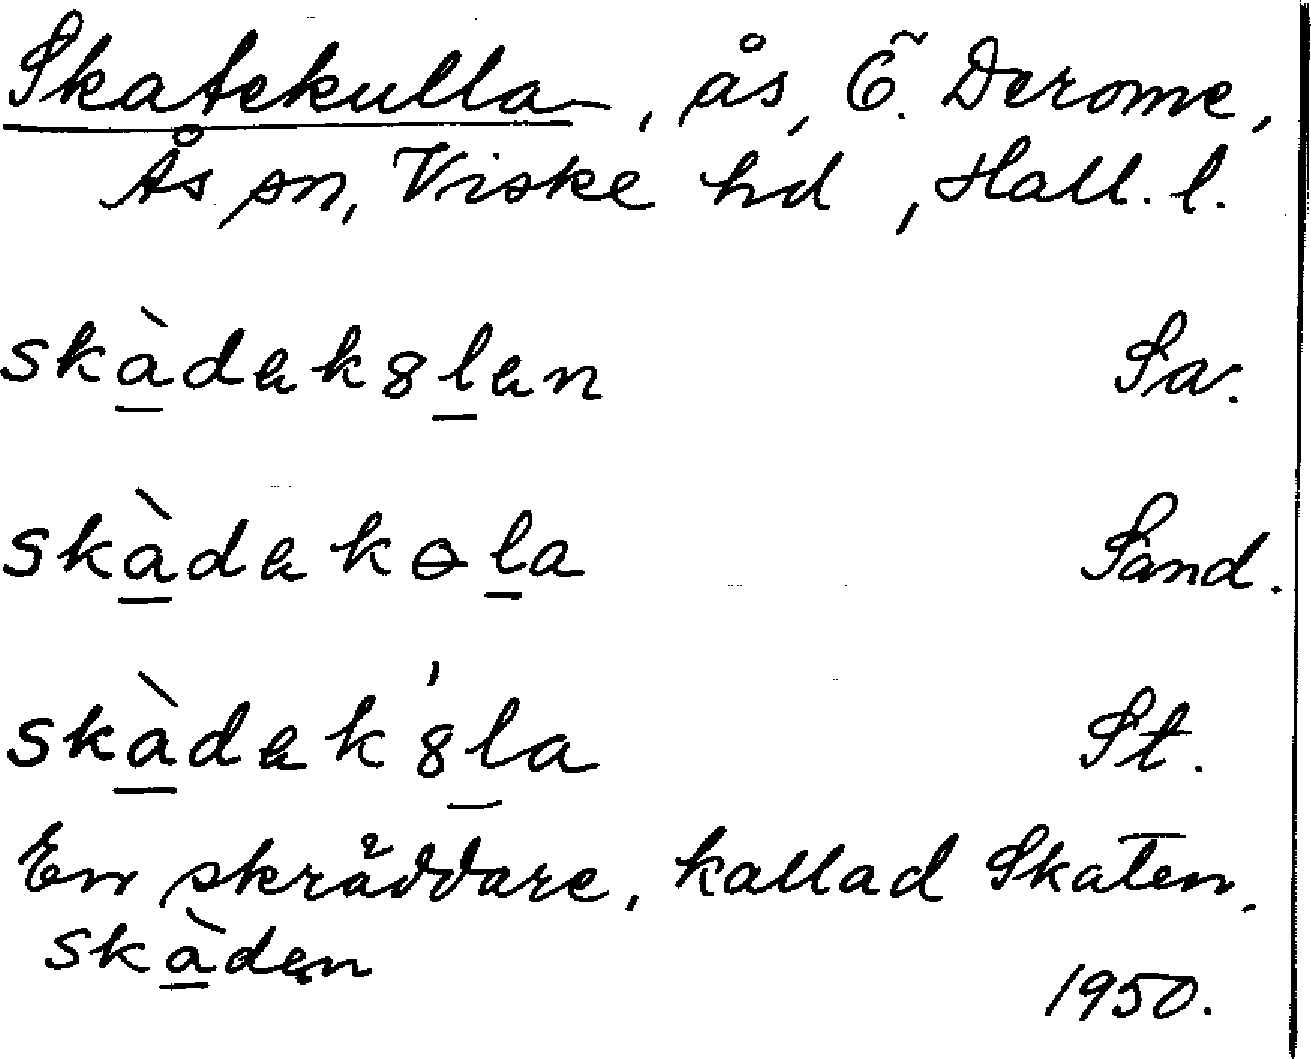 Skatekulla, ås, Ö. Derome,
Ås sn, Viske hd, Hall. l.
skàdək8lən Sa.
skàdəkɵla Sand.
skàdək'8la St.
En skräddare, kallad Skaten.
skàdən
1950.